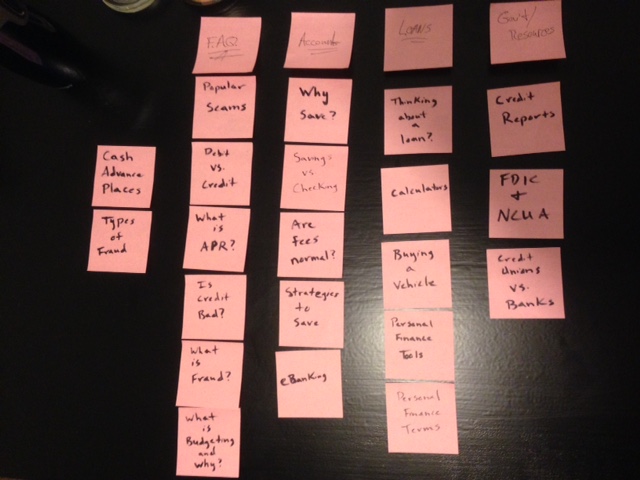 Cash
Advance
Places
Types
of
Fraud
FAQ
Popular
Scams
Debit
vs.
Credit
What
is
APR?
Is
Credit
Bad?
What
is
Fraud?
What
is
Budgeting
and
Why?
Accounts
Why
Save?
Savings
vs
Checking
Are
fees
normal?
Strategies
to
Save
eBanking
Loans
Thinking
about
a
loan?
Calculators
Buying
a
Vehicle
Personal
Finance
Tools
Personal
Finance
Terms
Gov't/
Resources
Credit
Reports
FDIC
+
NCUA
Credit
Unions
vs.
Banks